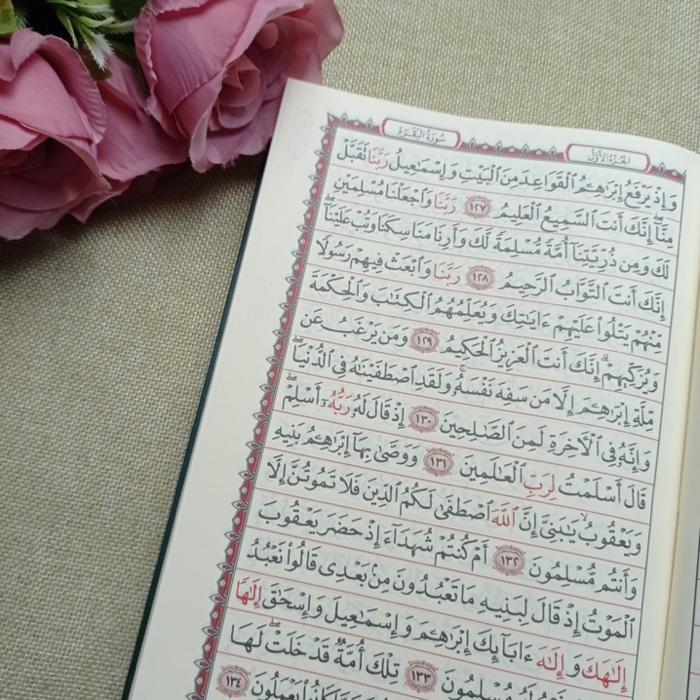 الجزء الأول
سورة البقرة
وَإِذْ يَرْفَعُ إِبْرَٰهِـۧمُ ٱلْقَوَاعِدَ مِنَ ٱلْبَيْتِ وَإِسْمَـٰعِيلُ رَبَّنَا تَقَبَّلْ
مِنَّآ ۖ إِنَّكَ أَنتَ ٱلسَّمِيعُ ٱلْعَلِيمُ ١٢٧ رَبَّنَا وَٱجْعَلْنَا مُسْلِمَيْنِ
لَكَ وَمِن ذُرِّيَّتِنَآ أُمَّةً مُّسْلِمَةً لَّكَ وَأَرِنَا مَنَاسِكَنَا وَتُبْ عَلَيْنَآ ۖ
إِنَّكَ أَنتَ ٱلتَّوَّابُ ٱلرَّحِيمُ ١٢٨ رَبَّنَا وَٱبْعَثْ فِيهِمْ رَسُولًا
مِّنْهُمْ يَتْلُوا۟ عَلَيْهِمْ ءَايَـٰتِكَ وَيُعَلِّمُهُمُ ٱلْكِتَـٰبَ وَٱلْحِكْمَةَ
وَيُزَكِّيهِمْ ۚ إِنَّكَ أَنتَ ٱلْعَزِيزُ ٱلْحَكِيمُ ١٢٩ وَمَن يَرْغَبُ عَن
مِّلَّةِ إِبْرَٰهِـۧمَ إِلَّا مَن سَفِهَ نَفْسَهُۥ ۚ وَلَقَدِ ٱصْطَفَيْنَـٰهُ فِى ٱلدُّنْيَا ۖ
وَإِنَّهُۥ فِى ٱلْـَٔاخِرَةِ لَمِنَ ٱلصَّـٰلِحِينَ ١٣٠ إِذْ قَالَ لَهُۥ رَبُّهُۥٓ أَسْلِمْ ۖ
قَالَ أَسْلَمْتُ لِرَبِّ ٱلْعَـٰلَمِينَ ١٣١ وَوَصَّىٰ بِهَآ إِبْرَٰهِـۧمُ بَنِيهِ
وَيَعْقُوبُ يَـٰبَنِىَّ إِنَّ ٱللَّهَ ٱصْطَفَىٰ لَكُمُ ٱلدِّينَ فَلَا تَمُوتُنَّ إِلَّا
وَأَنتُم مُّسْلِمُونَ ١٣٢ أَمْ كُنتُمْ شُهَدَآءَ إِذْ حَضَرَ يَعْقُوبَ
ٱلْمَوْتُ إِذْ قَالَ لِبَنِيهِ مَا تَعْبُدُونَ مِنۢ بَعْدِى قَالُوا۟ نَعْبُدُ
إِلَـٰهَكَ وَإِلَـٰهَ ءَابَآئِكَ إِبْرَٰهِـۧمَ وَإِسْمَـٰعِيلَ وَإِسْحَـٰقَ إِلَـٰهًا
مُسْلِمُونَ ١٣٣ تِلْكَ أُمَّةٌ قَدْ خَلَتْ ۖ لَهَا
يَعْمَلُونَ ١٣٤